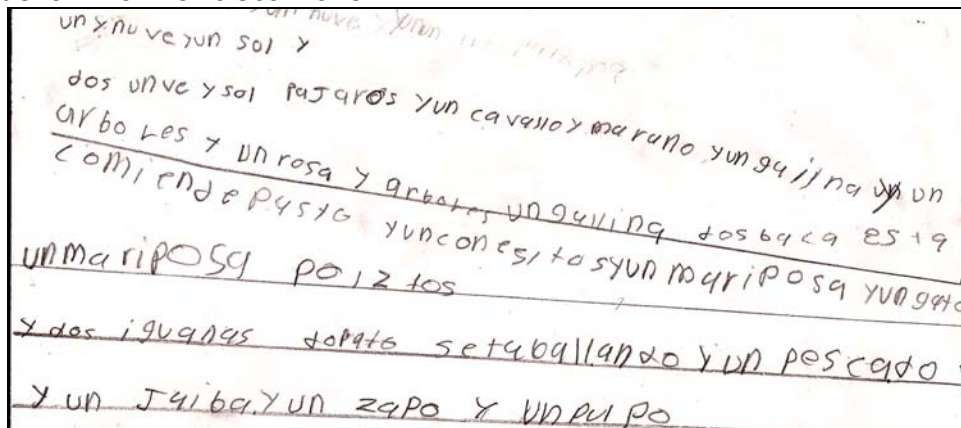 un y nuve yun sol y
dos unve y sol pajaros yun cavallo y marano yun gallina yn un
arboles y un rosa y arboles un gallina dos baca esta
comiendepasto yun conesitosyun mariposa yun gato
unmariposa poiztos
y dos iguanas dopato setaballando yun pescado
y un Jaiba. y un zapo y un pulpo